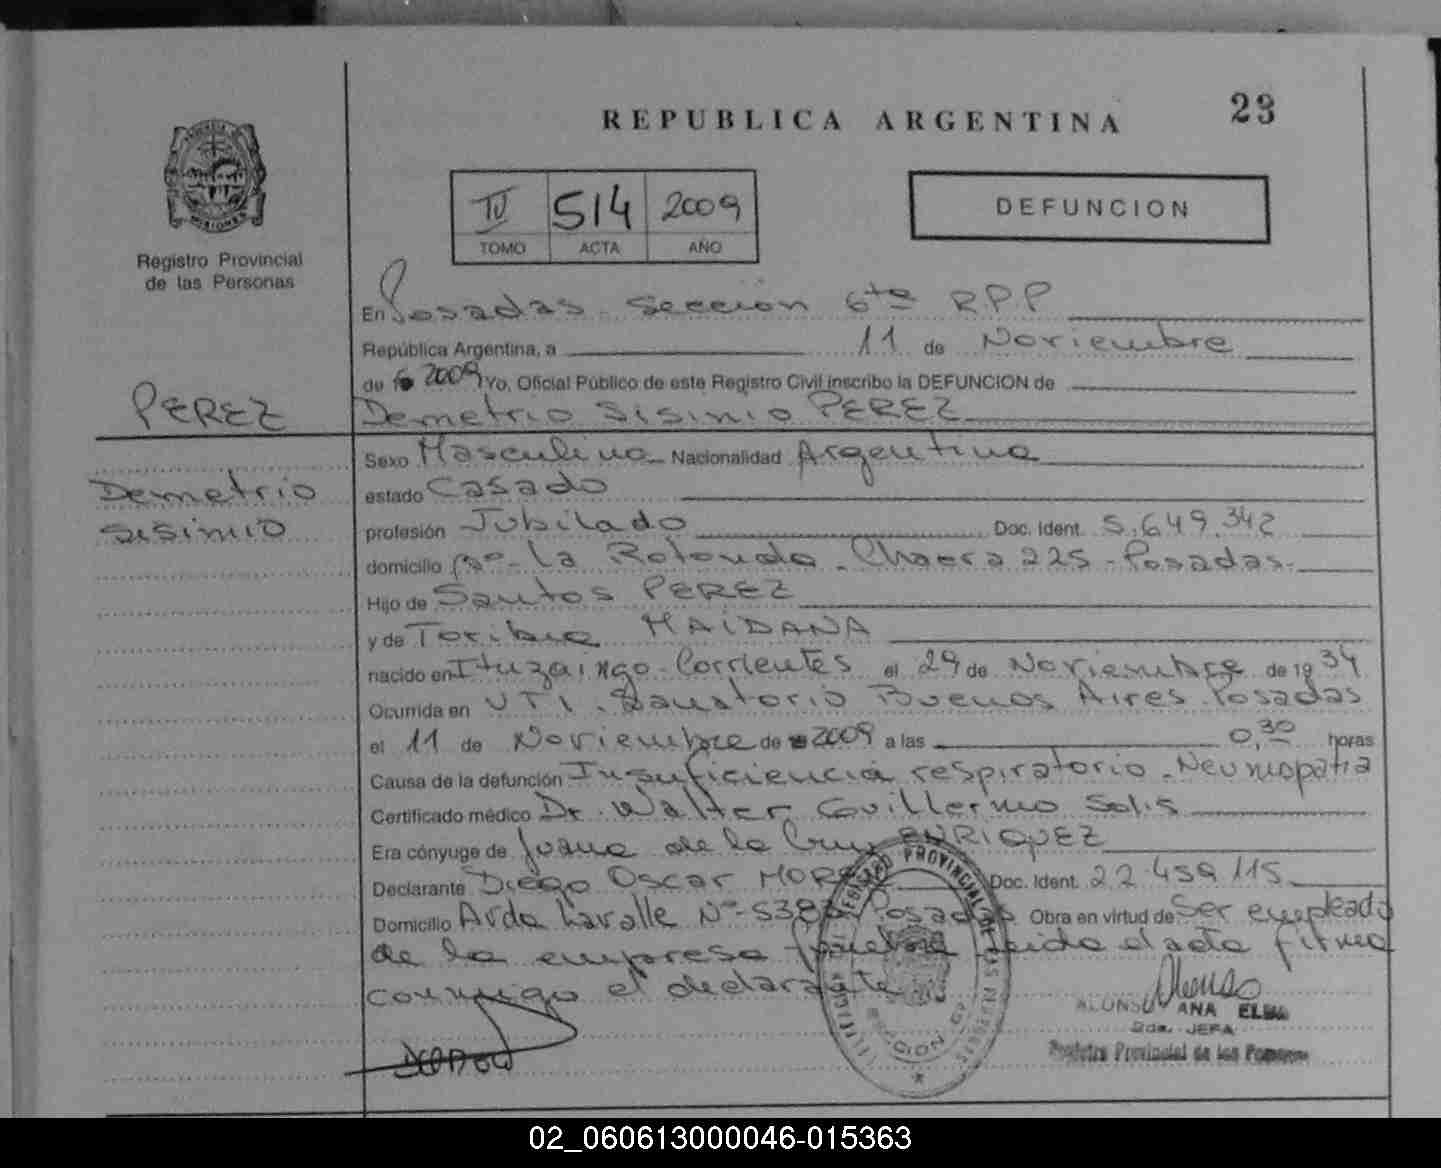 REPUBLICA ARGENTINA
23
MISIONES
Registro Provincial
de las Personas
IV 514 2009
TOMO ACTA AÑO
DEFUNCION
En Posadas Sección 6ta RPP
República Argentina, a 11 de Noviembre
de 2009 Yo, Oficial Público de este Registro Civil inscribo la DEFUNCION de
PEREZ
Demetrio Sisinio PEREZ
Demetrio
Sisinio
Sexo Masculino Nacionalidad Argentina
estado Casado
profesión Jubilado Doc. Ident. 5.649.342
domicilio Bº La Rotonda - Chacra 225 - Posadas
Hijo de Santos PEREZ
y de Toribia MAIDANA
nacido en Ituzaingo - Corrientes el 29 de Noviembre de 1934
Ocurrida en UTI. Sanatorio Buenos Aires Posadas
el 11 de Noviembre de 2009 a las 0,30 horas
Causa de la defunción Insuficiencia respiratorio - Neumopatia
Certificado médico Dr. Walter Guillermo Solis
Era cónyuge de Juana de la Cruz ENRIQUEZ
Declarante Diego Oscar Doc. Ident. 22.459.115
Domicilio Avda Lavalle Nº Posadas Obra en virtud de Ser empleado
de la empresa leida el acta firma
conmigo el declarante
REGISTRO PROVINCIAL DE LAS PERSONAS
SECCION 6ª
ALONSO ANA ELBA
Gda. JEFA
Registro Provincial de las Personas
02_060613000046-015363